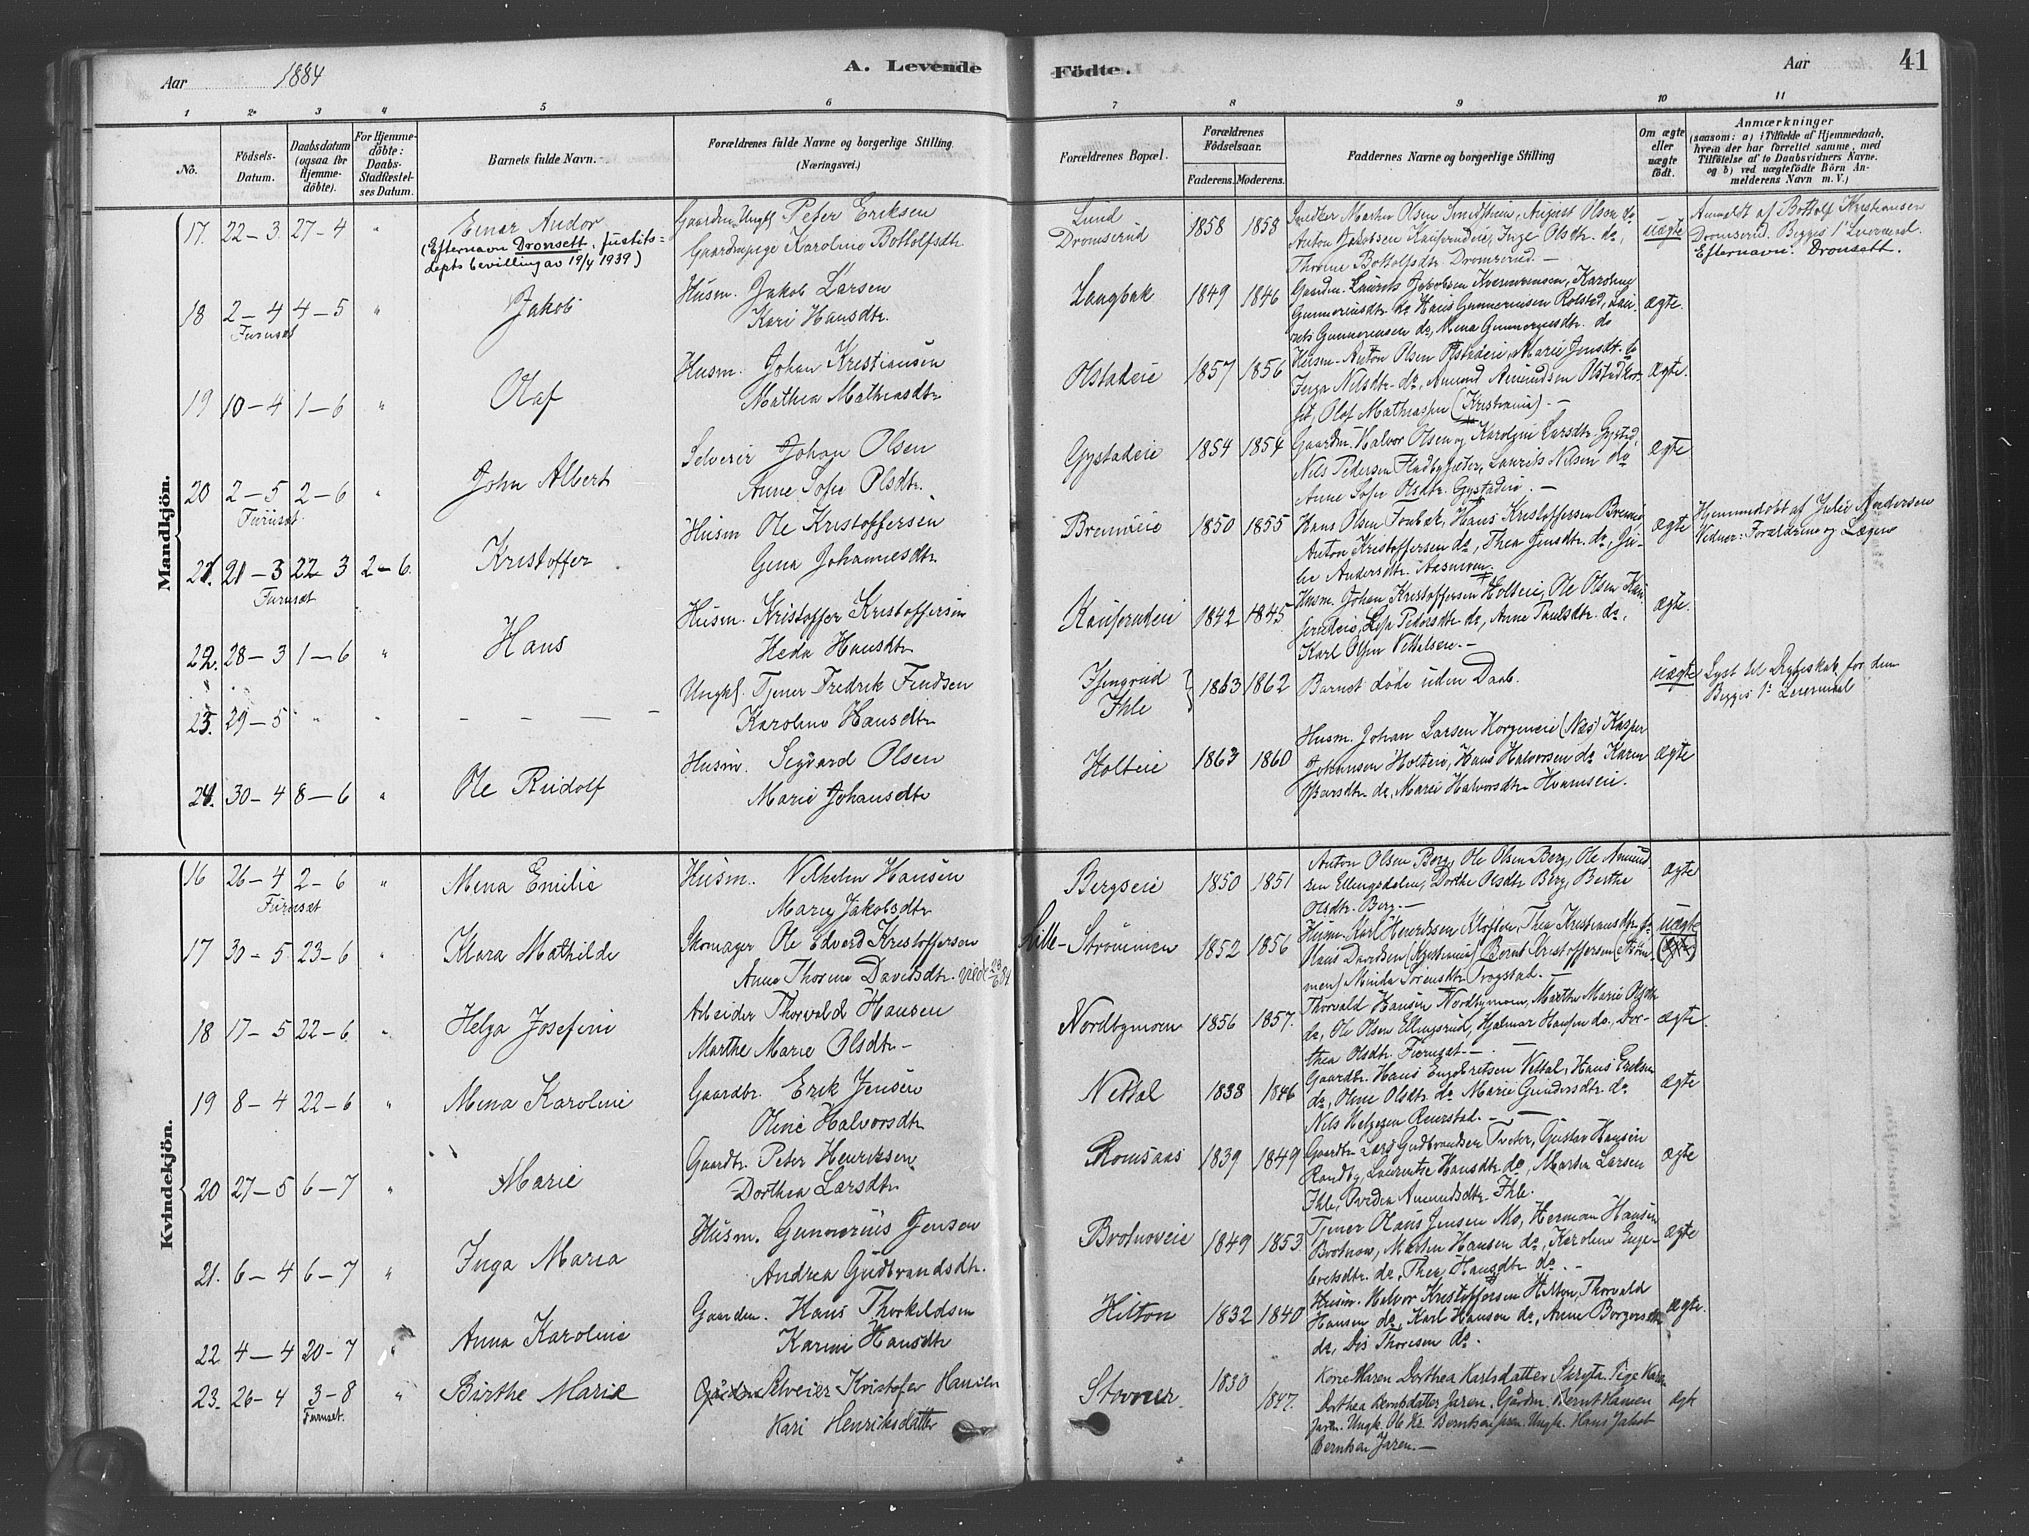 Aar 1884 A. Levende Födte. Aar 41
1 2 3 4 5 6 7 8 9 10 11
No.
Födsels-Datum.
Daabsdatum (ogsaa for Hjemmedöbte).
For Hjemmedöbte: Daabs-Stadfæstelses Datum.
Barnets fulde Navn.
Forældrenes fulde Navne og borgerlige Stilling. (Næringsvei.)
Forældrenes Bopæl.
Forældrenes Födselsaar.
Faderens. Moderens.
Faddernes Navne og borgerlige Stilling
Om ægte eller uægte födt.
Anmærkninger
(saasom: a) i Tilfælde af Hjemmedaab, hvem der har forrettet samme, med Tilföielse af to Daabsvidners Navne. og b) ved uægtefödte Börn Anmelderens Navn m. V.)
Mandkjön.
17. 22-3 27-4 " Einar Andor
(Efternavn Dronsett, Justits-
depts bevilling av 19/4 1939)
Gaardm. Ungk. Peter Eriksen
Gaardmpige Karoline Bottolfsdtr.
Lund
Dromserud
1858 1858
Anton Jakobsen
Thorine Bottolfsdtr. Dromserud. —
uægte
Anmeldt af Bottolf Kristiansen
Dromserud. Begges 1ste Leiermaal.
Efternavn: Dronsett.
18 2-4 4-5 " Jakob
Furuset
Husm. Jakob Larsen
Kari Hansdtr.
Langbak 1849 1846
Gunneriusdtr. do Hans Gunneriussen Rolstad, Lau-
rits Gunneriussen do, Mina Gunneriusdtr. do
ægte.
19 10-4 1-6 " Olaf
Husm. Johan Kristiansen
Mathea Mathiasdtr
Olstadeie 1857 1856
Husm. Anton Olsen Olstadeie, Marie Jensdt. do
Inga Nilsdtr. do, Amund Amundsen
Olof Mathiassen (Kristiania). —
ægte.
20 2-5 2-6 " John Albert
Furuset
Selveier Johan Olsen
Anne Sofie Olsdtr.
Gystadeie 1854 1854
Gaardm. Halvor Olsen og Karoline Larsdtr. Gystad,
Nils Pedersen Fladbysæter, Laurits Nilsen do
Anne Sofie Olsdtr. Gystadeie. —
ægte
21. 21-3 22-3 2-6. Kristoffer
Furuset
Husm Ole Kristoffersen
Gina Johannesdtr
Brenneie 1850 1855
Hans Olsen Fonbæk, Hans Kristoffersen Brenneie
Anton Kristoffersen do, Thea Jensdtr. do, Ju-
lie Andersdtr. Aasmoen.
ægte
Hjemmedöbt af Julie Andersen
Vidner: Forældrene og Lægen
22. 28-3 1-6 " Hans
Husm. Kristoffer Kristoffersen
Heda Hansdtr
1842 1845
Husm. Johan Kristoffersen Holteie, Ole Olsen
Lisa Pedersdtr do, Anne Paulsdtr. do,
Karl Olsen
ægte.
23. 29-5 " " — — — —
Ungk. Tjener Fredrik Findsen
Karoline Hansdtr
Isingrud
Ihle
1863 1862
Barnet döde uden Daab.
uægte
Lyst til Ægteskab for dem
Begges 1ste Leiermaal
24. 30-4 8-6 " Ole Rudolf
Husm. Sigvard Olsen
Marie Johansdtr
Holteie 1863 1860
Husm. Johan Larsen (Næs) Kasper
Johansen Holteie, Hans Halvorsen do Karen
do, Marie Halvorsdtr.
ægte
Kvindekjön.
16 26-4 2-6 " Mina Emilie
Furuset
Husm. Vilhelm Hansen
Marie Jakobsdtr
Bergseie 1850 1851
Anton Olsen Berg, Ole Olsen Berg, Ole Amund-
sen Ellingsdalen, Dorthe Olsdtr Berg, Berthe
Olsdtr. Berg. —
ægte
17 30-5 23-6 " Klara Mathilde
Skomager Ole Edvard Kristoffersen
Anne Thorine Davidsdtr. viede 23/6 84
Lille-Strømmen 1852 1856
Husm. Karl Henriksen Kloften, Thea Kristiansdtr do
Klaus Davidsen (Kristiania) Bernt Kristoffersen (Strøm-
men) Minda Sørensdtr. Trogstad. —
uægte
(ægte)
18 17-5 22-6 " Helga Josefine
Arbeider Thorvald Hansen
Marthe Marie Olsdtr —
Nordbymoen 1856 1857.
Thorvald Hansen Nordbymoen, Marthe Marie Olsdtr
do, Ole Olsen Ellingsrud, Hjalmar Hansen do, Dor-
thea Olsdtr. Furuset. —
ægte.
19 8-4 22-6 " Mina Karoline
Gaardbr. Erik Jensen
Oline Halvorsdtr
Nettal 1838 1846
Gaardbr. Hans Engebretsen Nettal, Hans Eriksen
do, Oline Olsdtr do Marie Gundersdtr. do
Nils Helgesen
ægte
20 27-5 6-7 " Marie
Gaardbr. Peter Henriksen
Dorthea Larsdtr
Romsaas 1839 1849
Gaardbr. Lars Gudbrandsen Tveter, Gustav Hansen
Randby, Laurentse Hansdtr do, Martin Larsen
Ihle, Amundsdtr. Ihle.
ægte
21. 6-4 6-7 " Inga Maria
Husm. Gunnerius Jensen
Andrea Gudbrandsdtr.
Brotnoveie 1849 1853.
Tjener Olaus Jensen Mo, Herman Hansen
Brotnov, Martin Hansen do, Karoline Enge-
bretsdtr. do, Thea Hansdtr do. —
ægte
22 4-4 20-7 " Anna Karoline
Gaardm. Hans Thorkildsen
Karine Hansdtr
Hilton 1832 1840
Husm. Halvor Kristoffersen Hilton, Thorvald
Hansen do, Karl Hansen do, Anne Borgersdtr.
do, Dis Thoresen do.
ægte.
23. 26-4 3-8 " Birthe Marie
Furuset.
Gårdm Selveier Kristofer Hansen
Kari Henriksdatter
Stovner 1830 1847.
Kone Maren Dorthea Karlsdatter Skryta. Pige Karen
Dorthea Berntsdatter Jaren. Gårdm. Bernt Hansen
Jaren. Ungk. Ole Kr. Berntsen Jaren. Ungk. Hans Jakob
Berntsen Jaren. —
ægte